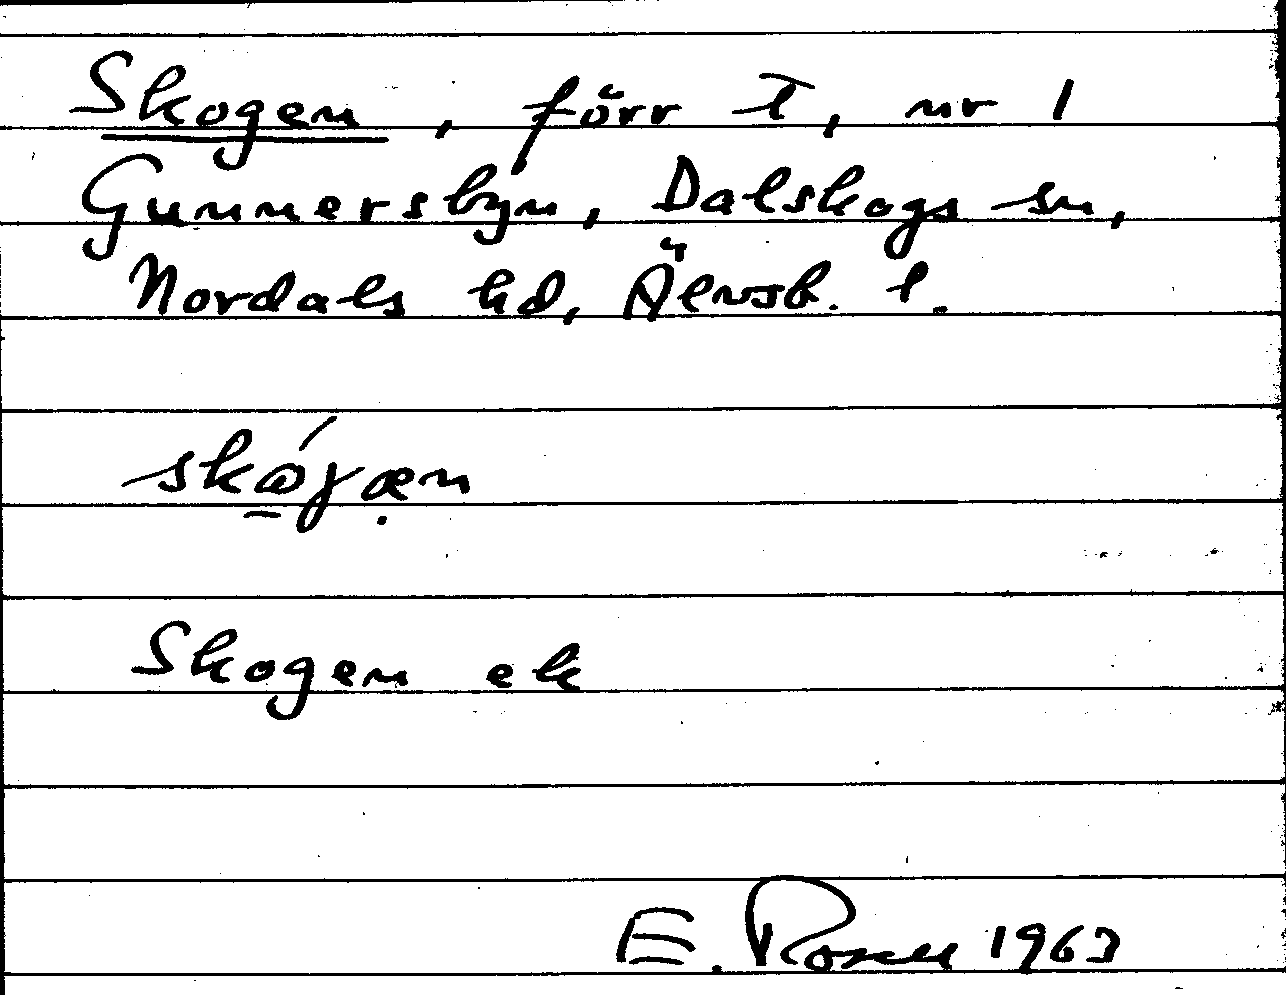 Skogen, förr T, nr 1
Gunnersbyn, Dalskogs sn,
Nordals hd, Älvsb. l.
skøγæn
Skogen ek
E. Rosell 1963